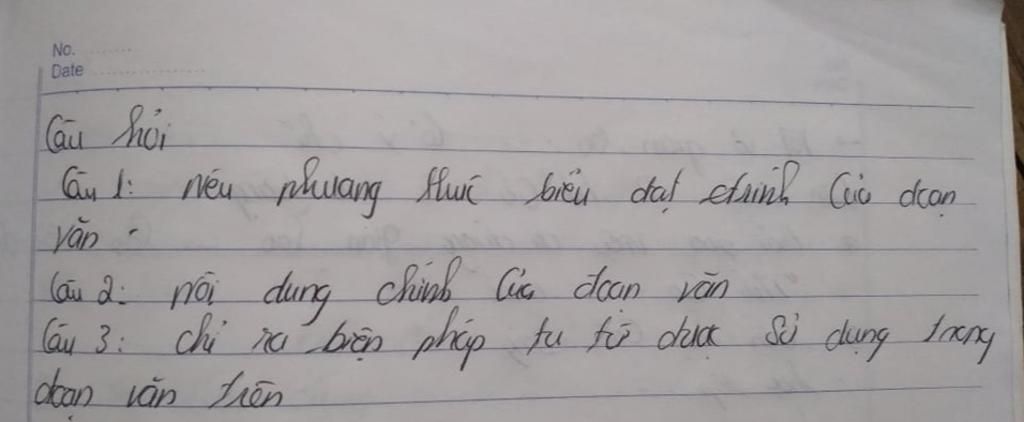 No.
Date
Câu hỏi
Câu 1: nêu phương thức biểu đạt chính của đoạn
văn.
Câu 2: nội dung chính của đoạn văn
Câu 3: chỉ ra biện pháp tu từ được sử dụng trong
đoạn văn trên